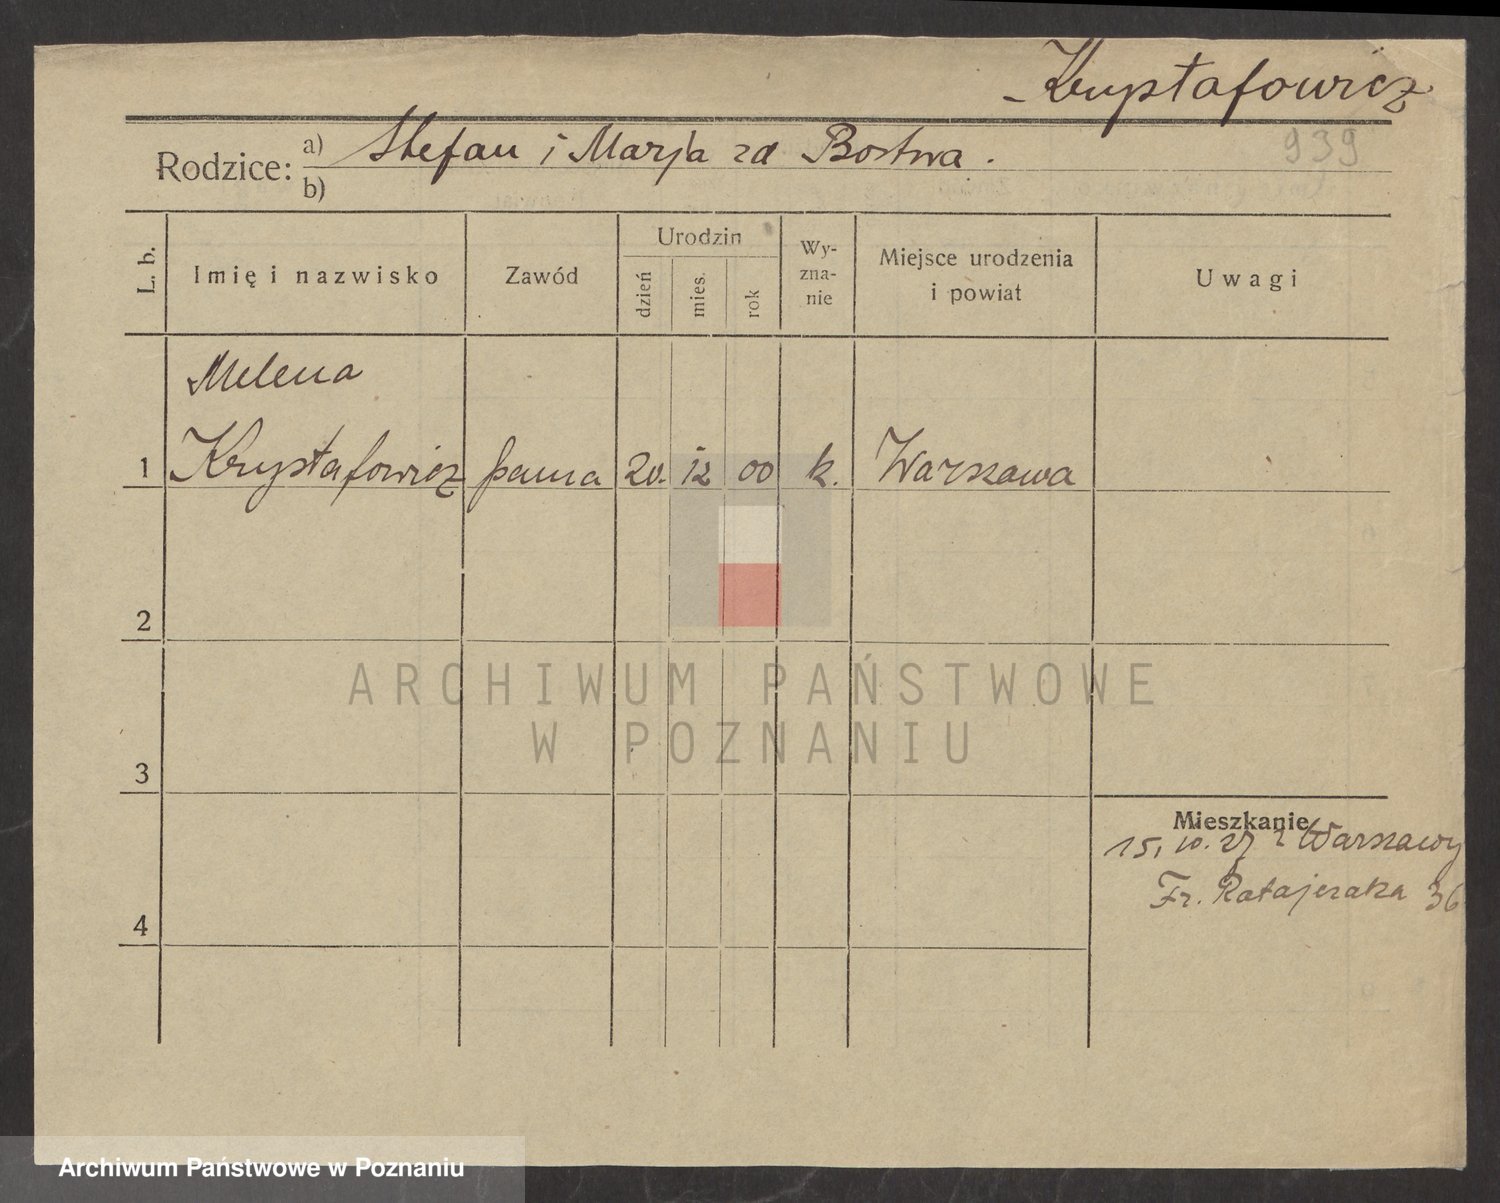 Krystafowicz
939
Rodzice: a) Stefan i Marja zd Bostwa.
b)
L. b.
Imię i nazwisko
Zawód
Urodzin
dzień
mies.
rok
Wy-
zna-
nie
Miejsce urodzenia
i powiat
Uwagi
Melena
1 Krystafowicz panna 20. 12 00 k. Warszawa
2
3
Mieszkanie
15. 10. 27 z Warszawy
Fr. Ratajczaka 36
4
ARCHIWUM PAŃSTWOWE
W POZNANIU
Archiwum Państwowe w Poznaniu